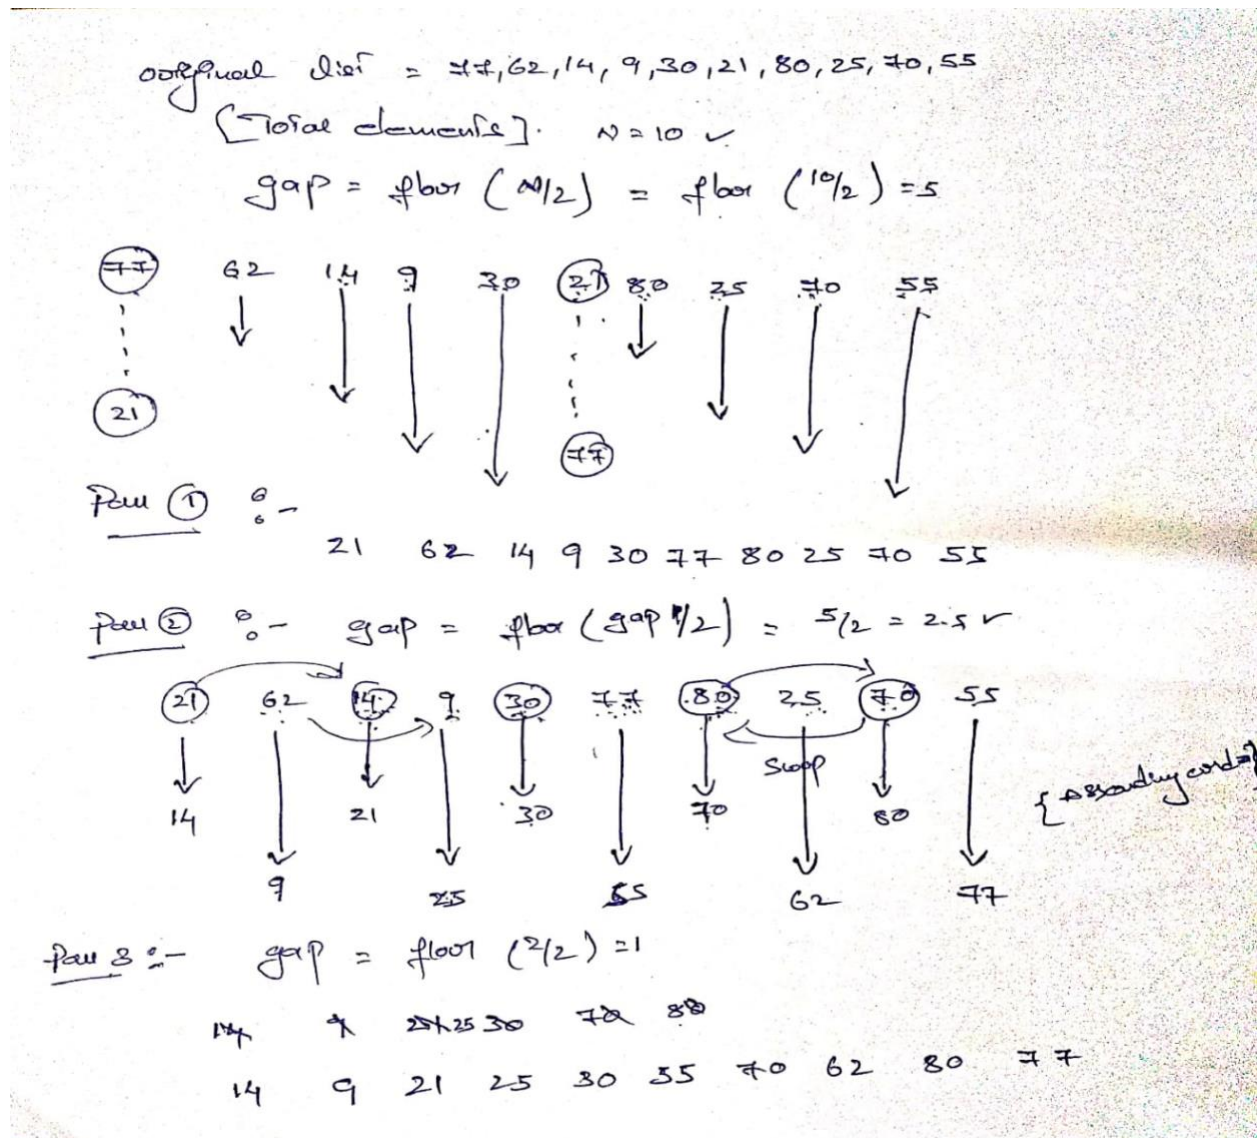 original list = 77, 62, 14, 9, 30, 21, 80, 25, 70, 55
[Total elements]. N = 10 ✓
gap = floor (N/2) = floor (10/2) = 5
77 62 14 9 30 21 80 25 70 55
21 77
Pass ① :-
21 62 14 9 30 77 80 25 70 55
Pass ② :- gap = floor (gap 1/2) = 5/2 = 2.5 ✓
21 62 14 9 30 77 80 25 70 55
Swap
14 21 30 70 80
9 25 55 62 77
Pass 3 :- gap = floor (2/2) = 1
14 9 21 25 30 70 80
14 9 21 25 30 55 70 62 80 77